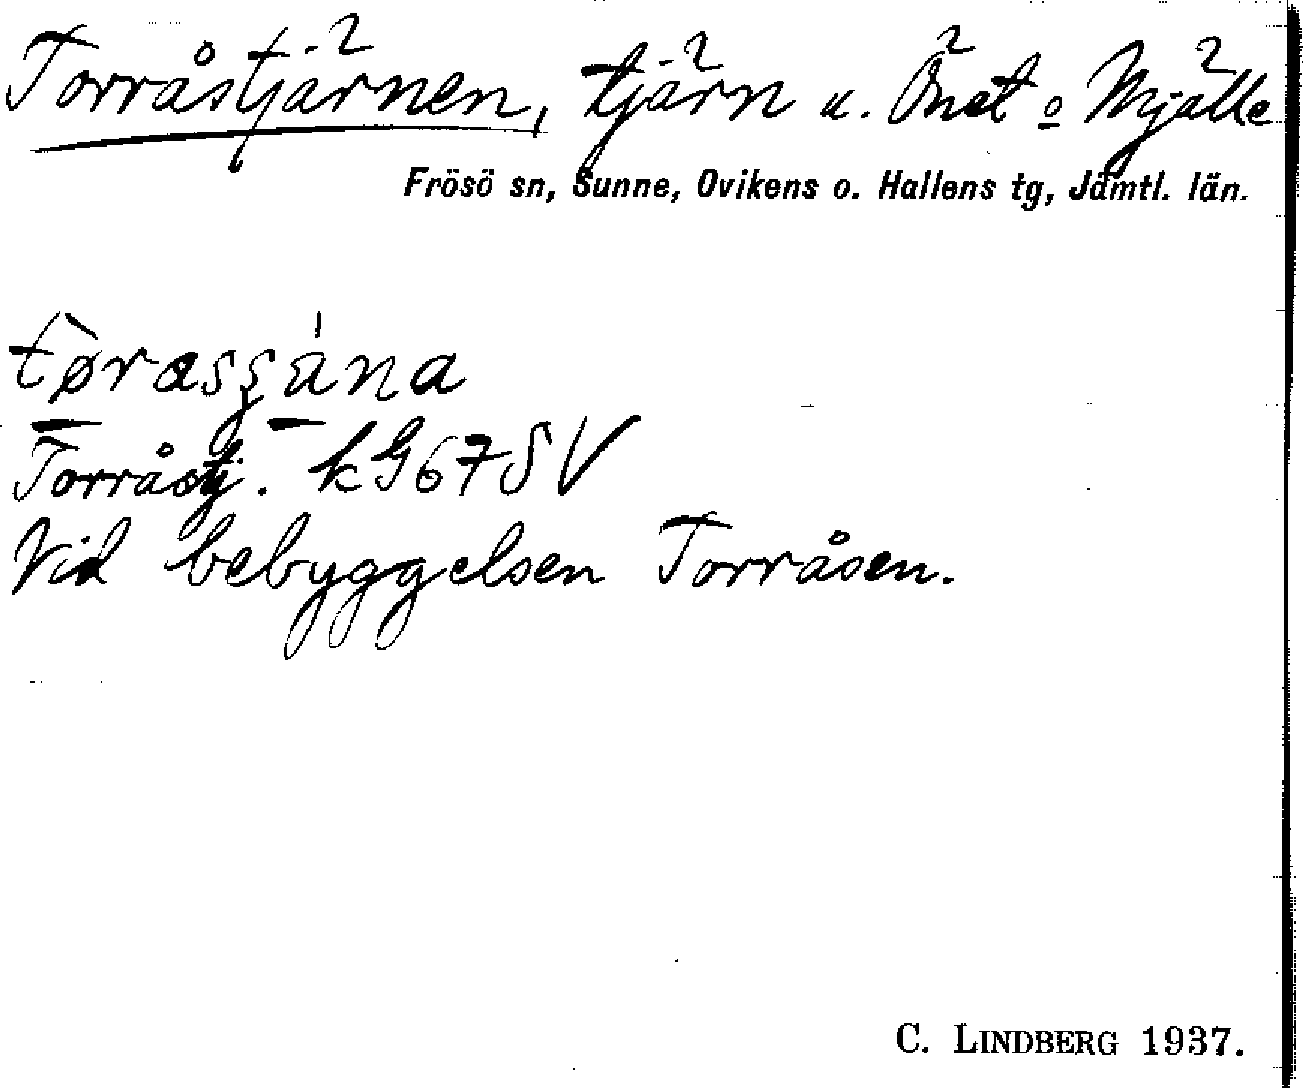 Torråstjärnen, tjärn u. Önet o Mjälle
Frösö sn, Sunne, Ovikens o. Hallens tg, Jämtl. län.
Torråstj. kG67SV
Vid bebyggelsen Torråsen.
C. LINDBERG 1937.